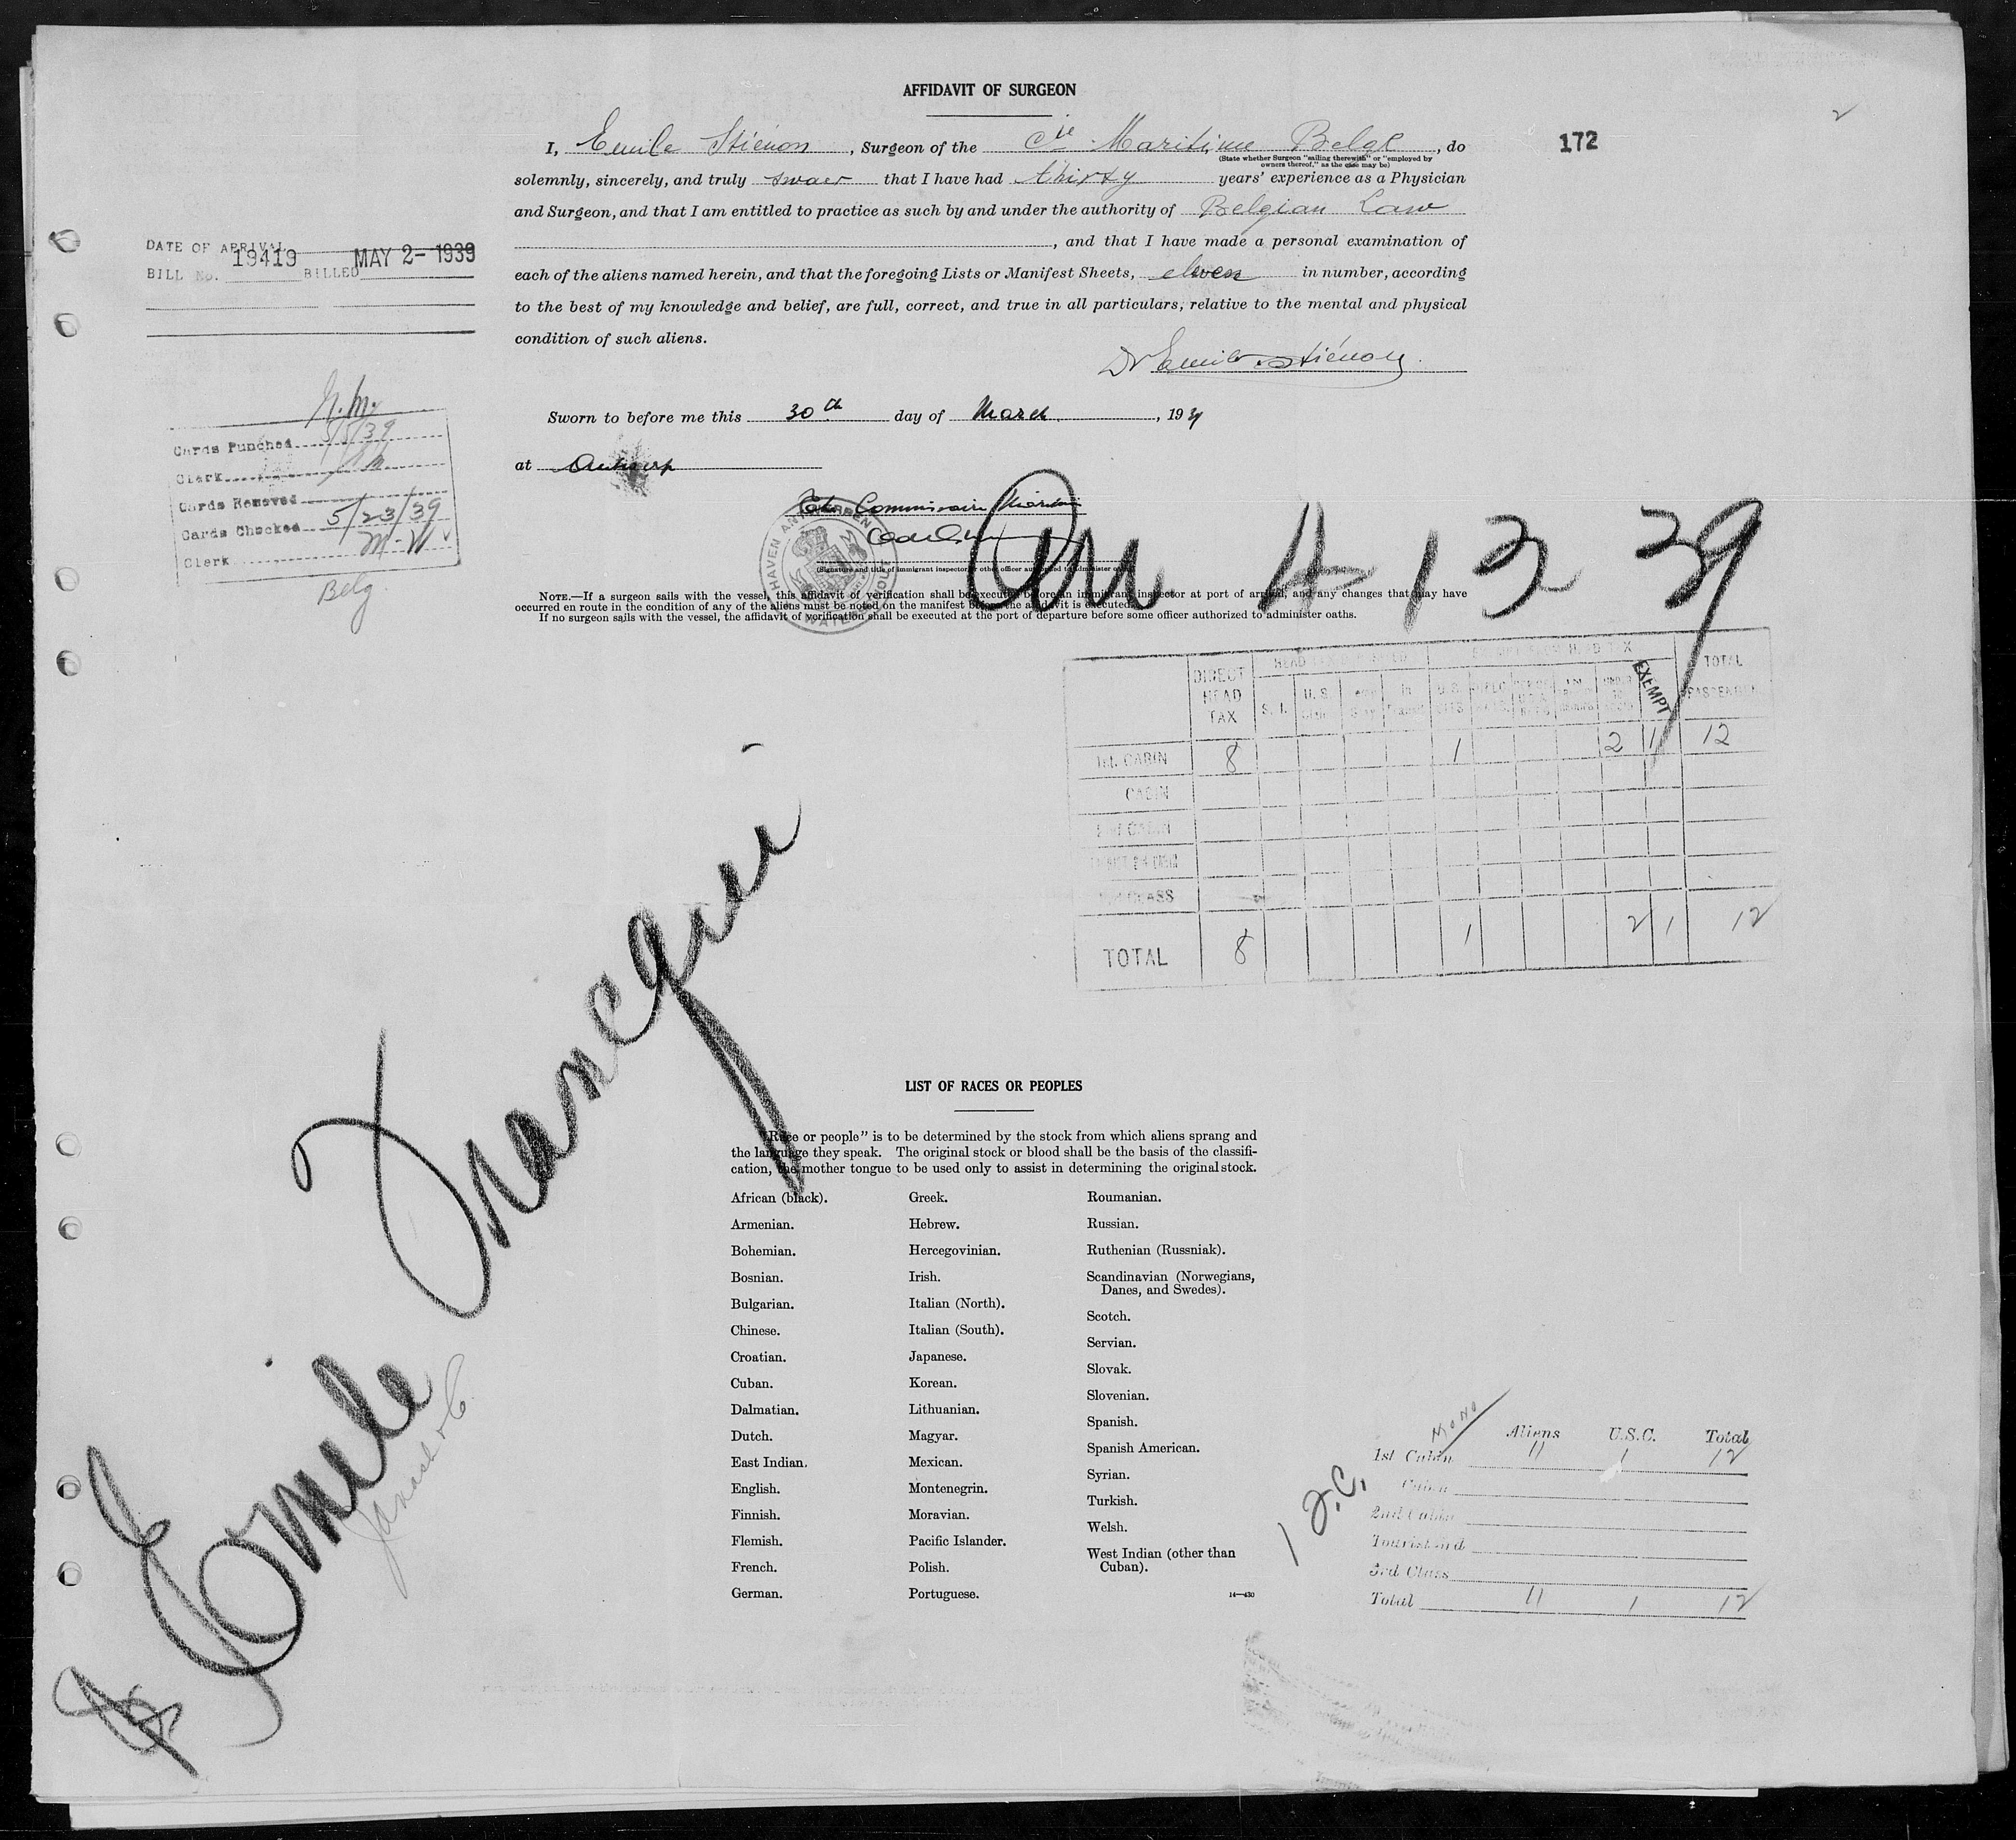 AFFIDAVIT OF SURGEON
172
I, Emile Stiénon, Surgeon of the Cie Maritime Belge, do
(State whether Surgeon "sailing therewith" or "employed by
owners thereof," as the case may be)
solemnly, sincerely, and truly swaer that I have had thirty years' experience as a Physician
and Surgeon, and that I am entitled to practice as such by and under the authority of Belgian Law
, and that I have made a personal examination of
each of the aliens named herein, and that the foregoing Lists or Manifest Sheets, eleven in number, according
to the best of my knowledge and belief, are full, correct, and true in all particulars, relative to the mental and physical
condition of such aliens.
Dr Emile Stiénon
Sworn to before me this 30th day of March, 1939
at Antwerp
Commissaire
(Signature and title of immigrant inspector or other officer authorized to administer oaths)
HAVEN ANTWERPEN
NOTE.—If a surgeon sails with the vessel, this affidavit of verification shall be executed before an immigrant inspector at port of arrival, and any changes that may have
occurred en route in the condition of any of the aliens must be noted on the manifest before the affidavit is executed.
If no surgeon sails with the vessel, the affidavit of verification shall be executed at the port of departure before some officer authorized to administer oaths.
DATE OF ARRIVAL
BILL No. 19419 BILLED MAY 2-1939
Cards Punched 5/5/39
Clerk
Cards Removed
Cards Checked 5/23/39
Clerk M.W
Belg
Arr 4 13 39
DIRECT HEAD TAX
S.I.
U.S.
In Transit
EXEMPT
TOTAL PASSENGERS
1st. CABIN 8 1 2 1 12
CABIN
2nd CABIN
CLASS
TOTAL 8 1 2 1 12
Emile Francqui
LIST OF RACES OR PEOPLES
"Race or people" is to be determined by the stock from which aliens sprang and
the language they speak. The original stock or blood shall be the basis of the classifi-
cation, the mother tongue to be used only to assist in determining the original stock.
African (black).
Armenian.
Bohemian.
Bosnian.
Bulgarian.
Chinese.
Croatian.
Cuban.
Dalmatian.
Dutch.
East Indian.
English.
Finnish.
Flemish.
French.
German.
Greek.
Hebrew.
Hercegovinian.
Irish.
Italian (North).
Italian (South).
Japanese.
Korean.
Lithuanian.
Magyar.
Mexican.
Montenegrin.
Moravian.
Pacific Islander.
Polish.
Portuguese.
Roumanian.
Russian.
Ruthenian (Russniak).
Scandinavian (Norwegians,
Danes, and Swedes).
Scotch.
Servian.
Slovak.
Slovenian.
Spanish.
Spanish American.
Syrian.
Turkish.
Welsh.
West Indian (other than
Cuban).
14—430
Aliens U.S.C. Total
1st Cabin 11 1 12
Cabin
2nd Cabin
Tourist 3rd
3rd Class
Total 11 1 12